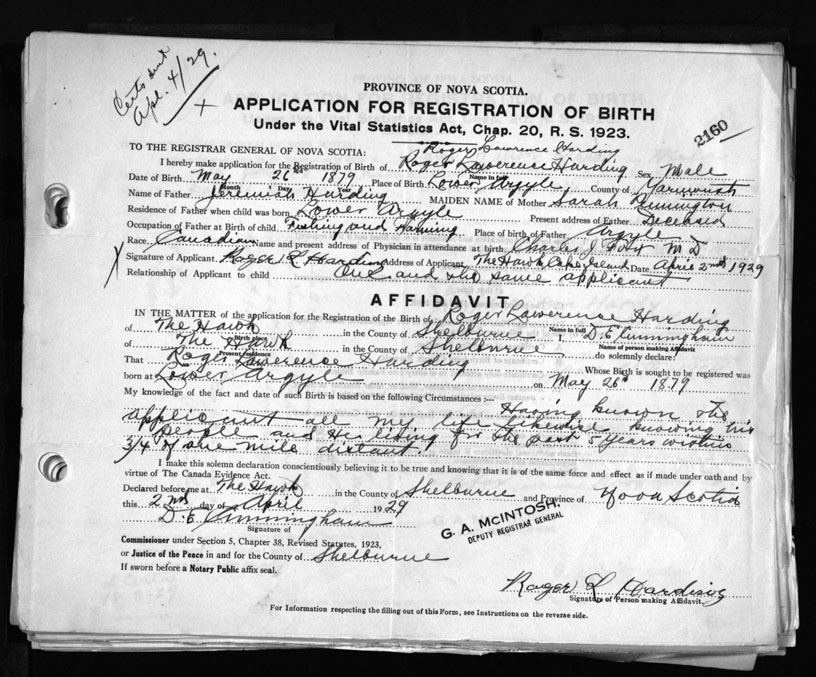 Certs sent
Apl. 4/29.
PROVINCE OF NOVA SCOTIA.
APPLICATION FOR REGISTRATION OF BIRTH
Under the Vital Statistics Act, Chap. 20, R. S. 1923.
2160
Roger Lawrence Harding
TO THE REGISTRAR GENERAL OF NOVA SCOTIA:
I hereby make application for the Registration of Birth of Roger Lawerence Harding Sex Male
Name in full
Date of Birth May 26th 1879 Place of Birth Lower Argyle County of Yarmouth
Month Day Year
Name of Father Jeremiah Harding MAIDEN NAME of Mother Sarah
Residence of Father when child was born Lower Argyle Present address of Father Deceased
Occupation of Father at Birth of child Fishing and Place of birth of Father Argyle
Race Canadian Name and present address of Physician in attendance at birth Charles J. M D
Signature of Applicant Roger L Harding Address of Applicant The Hawk Cape Island Date April 2nd 1929
Relationship of Applicant to child One and the same applicant
AFFIDAVIT
IN THE MATTER of the application for the Registration of the Birth of Roger Lawerence Harding
Name in full
of The Hawk in the County of Shelburne I, D. E Cunningham
Birth place
of The Hawk in the County of Shelburne do solemnly declare:
Present residence Name of person making Affidavit
That Roger Lawerence Harding Whose Birth is sought to be registered was
born at Lower Argyle on May 26th 1879
My knowledge of the fact and date of such Birth is based on the following Circumstances :—
Having known the
applicant all my life likewise knowing his
people and He living for the past 5 years within
3/4 of one mile distant.
I make this solemn declaration conscientiously believing it to be true and knowing that it is of the same force and effect as if made under oath and by
virtue of The Canada Evidence Act.
Declared before me at The Hawk in the County of Shelburne and Province of Nova Scotia
this 2nd day of April 1929
D. E Cunningham
Signature of
G. A. McINTOSH,
DEPUTY REGISTRAR GENERAL
Commissioner under Section 5, Chapter 38, Revised Statutes, 1923,
or Justice of the Peace in and for the County of Shelburne
If sworn before a Notary Public affix seal.
Roger L Harding
Signature of Person making Affidavit.
For Information respecting the filling out of this Form, see Instructions on the reverse side.